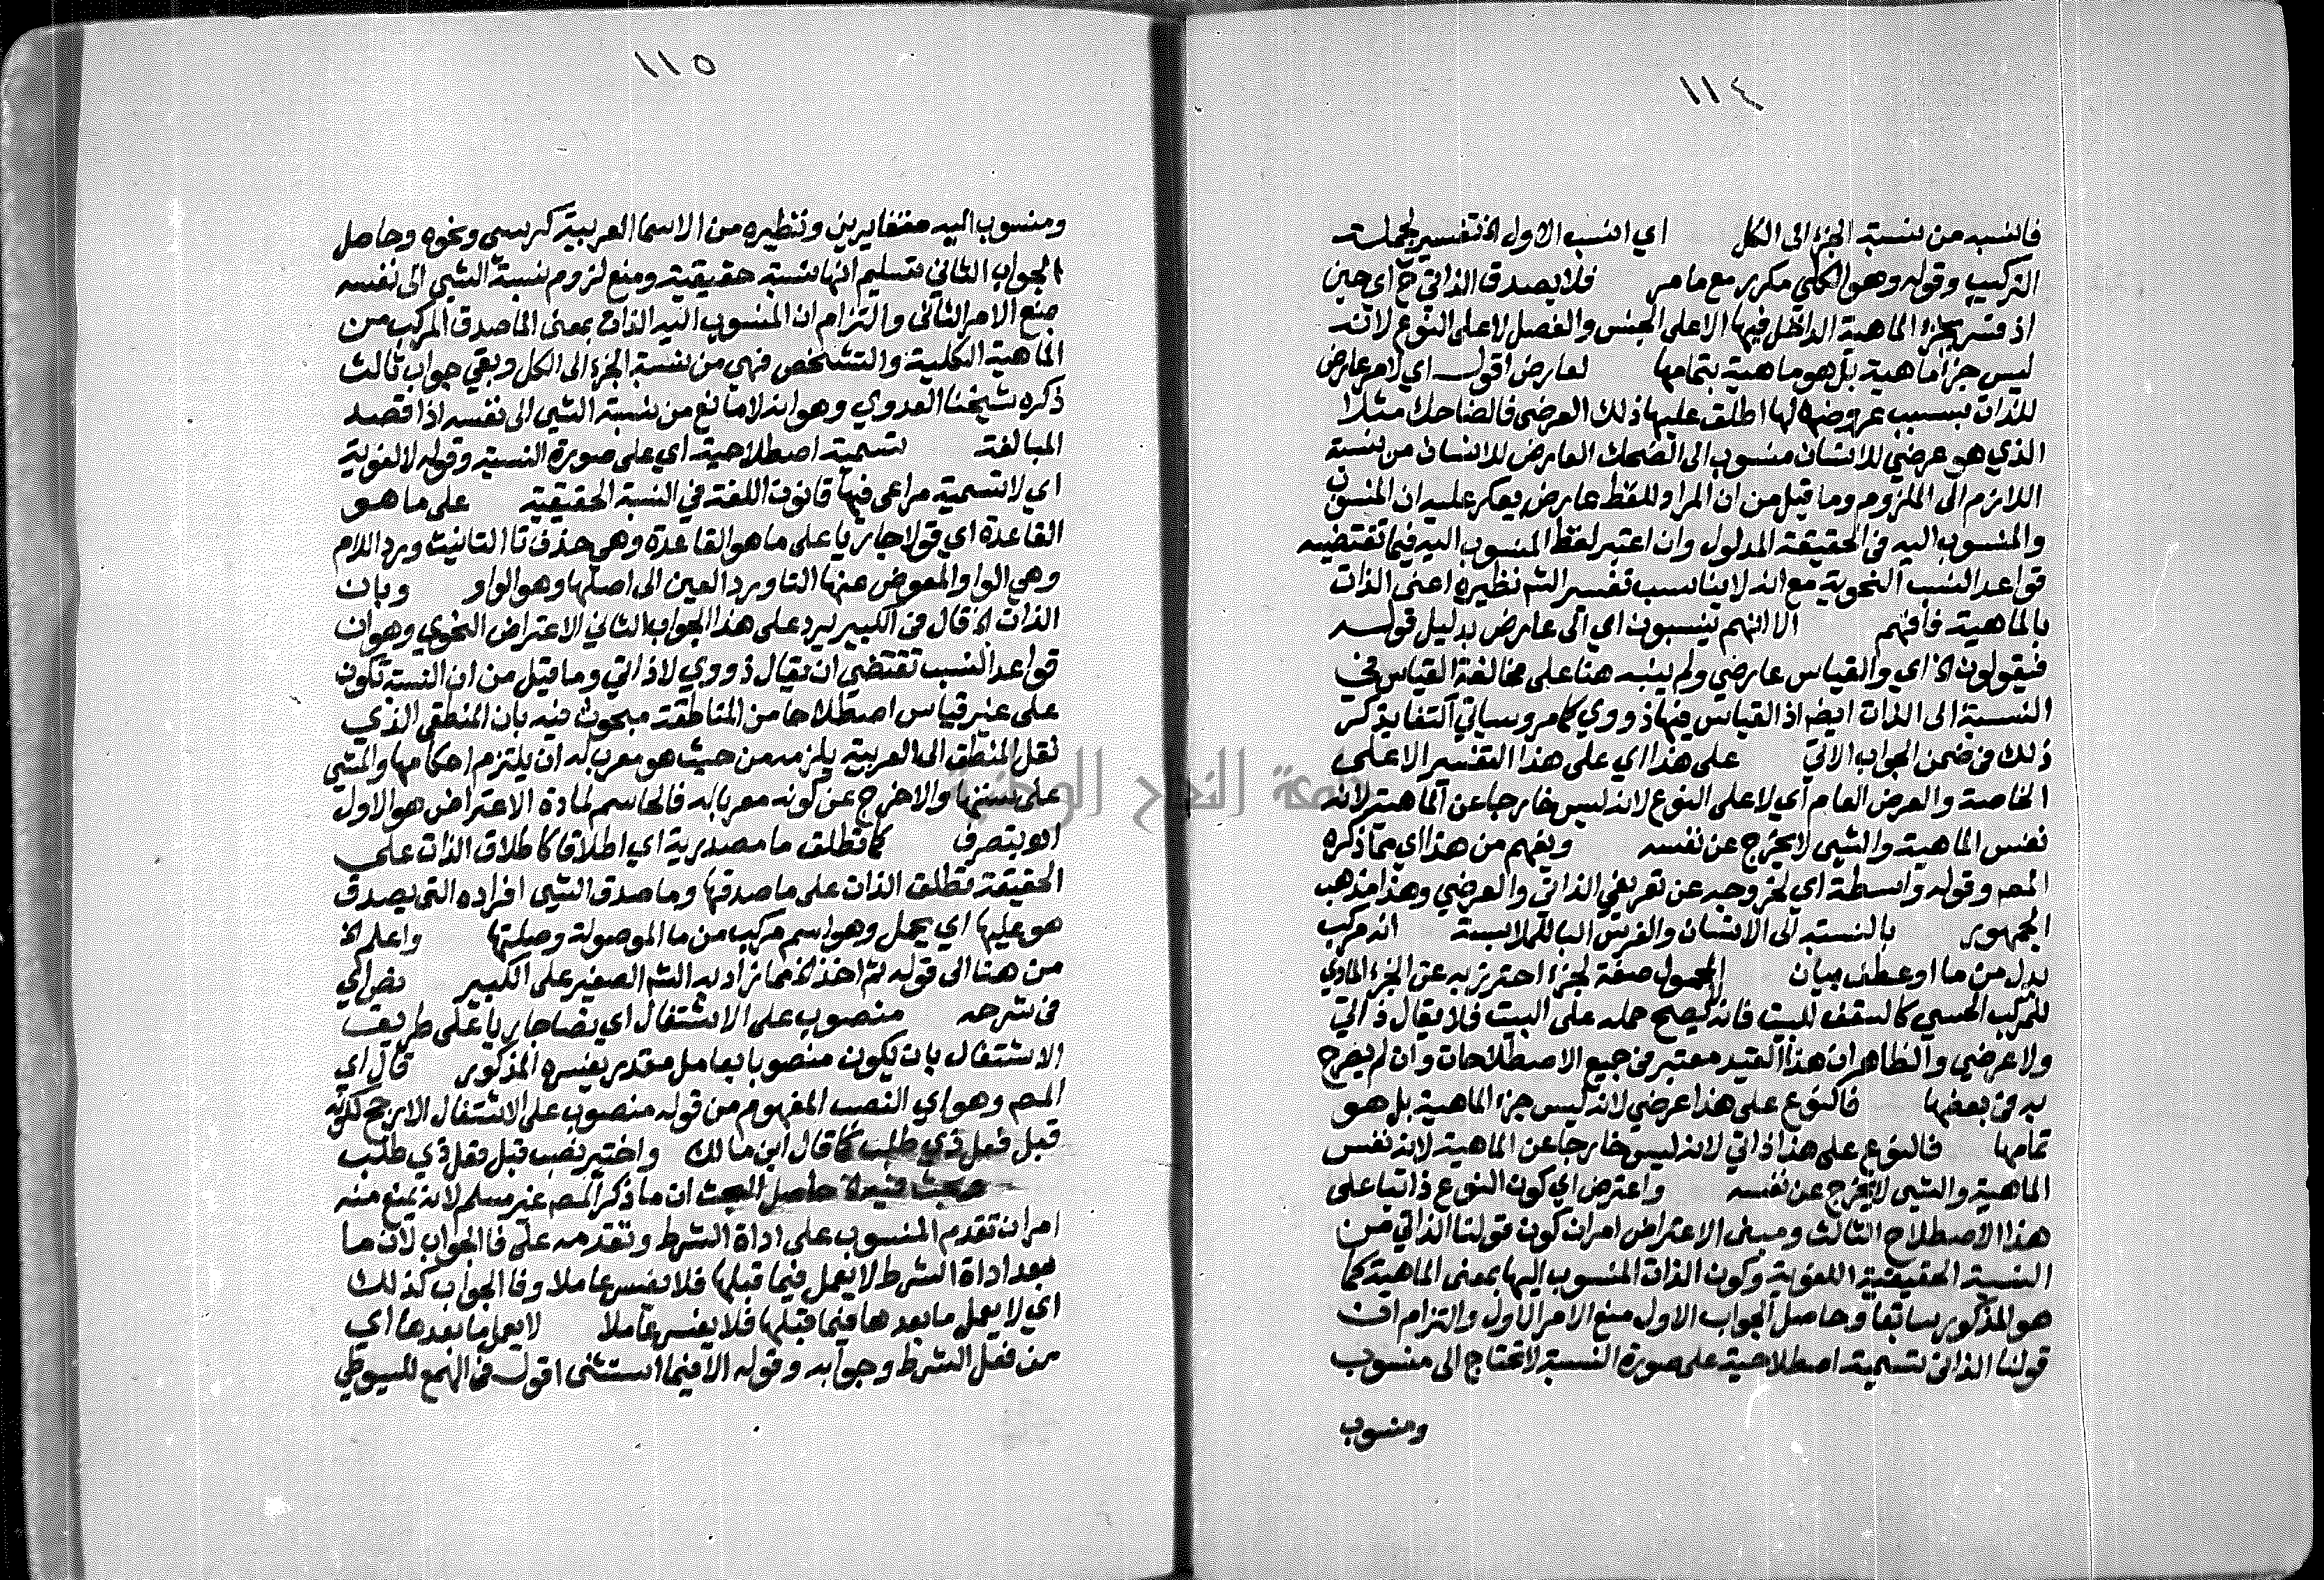 ١١٤
فالنسبه من نسبة الجزء الى الكل اي انسب الاول الخ تفسير لجملت
التركيب وقوله وهو الكلي مكرر مع ما مر فلا يصدق الذاتي ح اي حين
اذ فسر بجزء الماهية الداخل فيها الا على الجنس والفصل لا على النوع لانه
ليس جزأ ماهية بل هو ماهية بتمامها لعارض اقول اي لامر عارض
للذات بسبب عروضه لها اطلق عليها ذلك العرضي فالضاحك مثلا
الذي هو عرضي للانسان منسوب الى الضحك العارض للانسان من نسبة
اللازم الى الملزوم وما قيل من ان المراد للفظ عارض يعكر عليه ان المنسوب
والمنسوب اليه في الحقيقة المدلول وان اعتبر لفظ المنسوب اليه فيما تقتضيه
قواعد النسب النحوية مع انه لا يناسب تفسير الشم نظيره اعني الذات
بالماهية فافهم الا انهم ينسبون اي الى عارض بدليل قوله
فيقولون الخ اي والقياس عارضي ولم ينبه هنا على مخالفة القياس في
النسبة الى الذات ايضا اذ القياس فيها ذووي كما مر وسياتي اكتفا بذكر
ذلك في ضمن الجواب الاتي على هذا اي على هذا التفسير الا على
الخاصة والعرض العام اي لا على النوع لانه ليس خارجا عن الماهية لانه
نفس الماهية والشيى لا يخرج عن نفسه ويفهم من هذا اي مما ذكره
المص وقوله واسطة اي لخروجه عن تعريفي الذاتي والعرضي وهذا مذهب
الجمهور بالنسبة الى الانسان والفرس البا للملابسة انه مركب
بدل من ما او عطف بيان المحمول صفة لجزء احترز به عن الجزء المادي
للمركب الحسي كالسقف للبيت فانه لا يصح حمله على البيت فلا يقال ذاتي
ولا عرضي والظاهر ان هذا القيد معتبر في جميع الاصطلاحات وان لم يصرح
به في بعضها فالنوع على هذا عرضي لانه ليس جزء الماهية بل هو
تمامها فالنوع على هذا ذاتي لانه ليس خارجا عن الماهية لانه نفس
الماهية والشيى لا يخرج عن نفسه واعترض اي كون النوع ذاتيا على
هذا الاصطلاح الثالث ومبنى الاعتراض امران كون قولنا الذاتي من
النسبة الحقيقية اللغوية وكون الذات المنسوب اليها بمعنى الماهية كما
هو المذكور سابقا وحاصل الجواب الاول منع الامر الاول والتزام ان
قولنا الذاتي تسمية اصطلاحية على صورة النسبة لا تحتاج الى منسوب
ومنسوب
١١٥
ومنسوب اليه متغايرين ونظيره من الاسما العربية كرسى ونحوه وحاصل
الجواب الثاني تسليم انها نسبة حقيقية ومنع لزوم نسبة الشيى الى نفسه
منع الامر الثاني والتزام ان المنسوب اليه الذات بمعنى الماصدق المركب من
الماهية الكلية والتشخص فهي من نسبة الجزء الى الكل وبقي جواب ثالث
ذكره شيخنا العدوي وهو انه لا مانع من نسبة الشيى الى نفسه اذا قصد
المبالغة تسمية اصطلاحية اي على صورة النسبة وقوله لا لغوية
اي لا تسمية مراعى فيها قانون اللغة في النسبة الحقيقية على ما هو
القاعدة اي قولا جاريا على ما هو القاعدة وهي حذف تا التانيث ورد اللام
وهي الواو المعوض عنها التا ورد العين الى اصلها وهو الواو وبان
الذات الخ قال في الكبير يرد على هذا الجواب الثاني الاعتراض النحوي وهو ان
قواعد النسب تقتضي ان يقال ذووي لا ذاتي وما قيل من ان النسبة تكون
على غير قياس اصطلاحا من المناطقة مبحوث فيه بان المنطقي الذي
نقل المنطق الى العربية يلزمه من حيث هو معرب له ان يلتزم احكامها والمشي
على سننها والا خرج عن كونه معربا له فالحاسم لمادة الاعتراض هو الاول
اهـ بتصرف كما تطلق ما مصدرية اي اطلاقا كاطلاق الذات على
الحقيقة تطلق الذات على ما صدقها وما صدق الشيى افراده التي يصدق
هو عليها اي يحمل وهو اسم مركب من ما الموصولة وصلتها واعلم الخ
من هنا الى قوله ثم اخذ الخ مما زاد به الشم الصغير على الكبير نص اي
في شرحه منصوب على الاشتغال اي نصا جاريا على طريق
الاشتغال بان يكون منصوبا بعامل مقدر يفسره المذكور قال اي
المص وهو اي النصب المفهوم من قوله منصوب على الاشتغال الارجح لكونه
قبل فعل ذي طلب كما قال ابن مالك واختير نصب قبل فعل ذي طلب
وبحث فيه الخ حاصل البحث ان ما ذكر المص غير مسلم لانه يمنع منه
امران تقدم المنسوب على اداة الشرط وتقدمه على فا الجواب لان ما
بعد اداة الشرط لا يعمل فيما قبلها فلا يفسر عاملا وفا الجواب كذلك
اي لا يعمل ما بعدها فيما قبلها فلا يفسر عاملا لا يعمل ما بعدها اي
من فعل الشرط وجوابه وقوله الا فيما استثنى اقول في الهمع للسيوطي